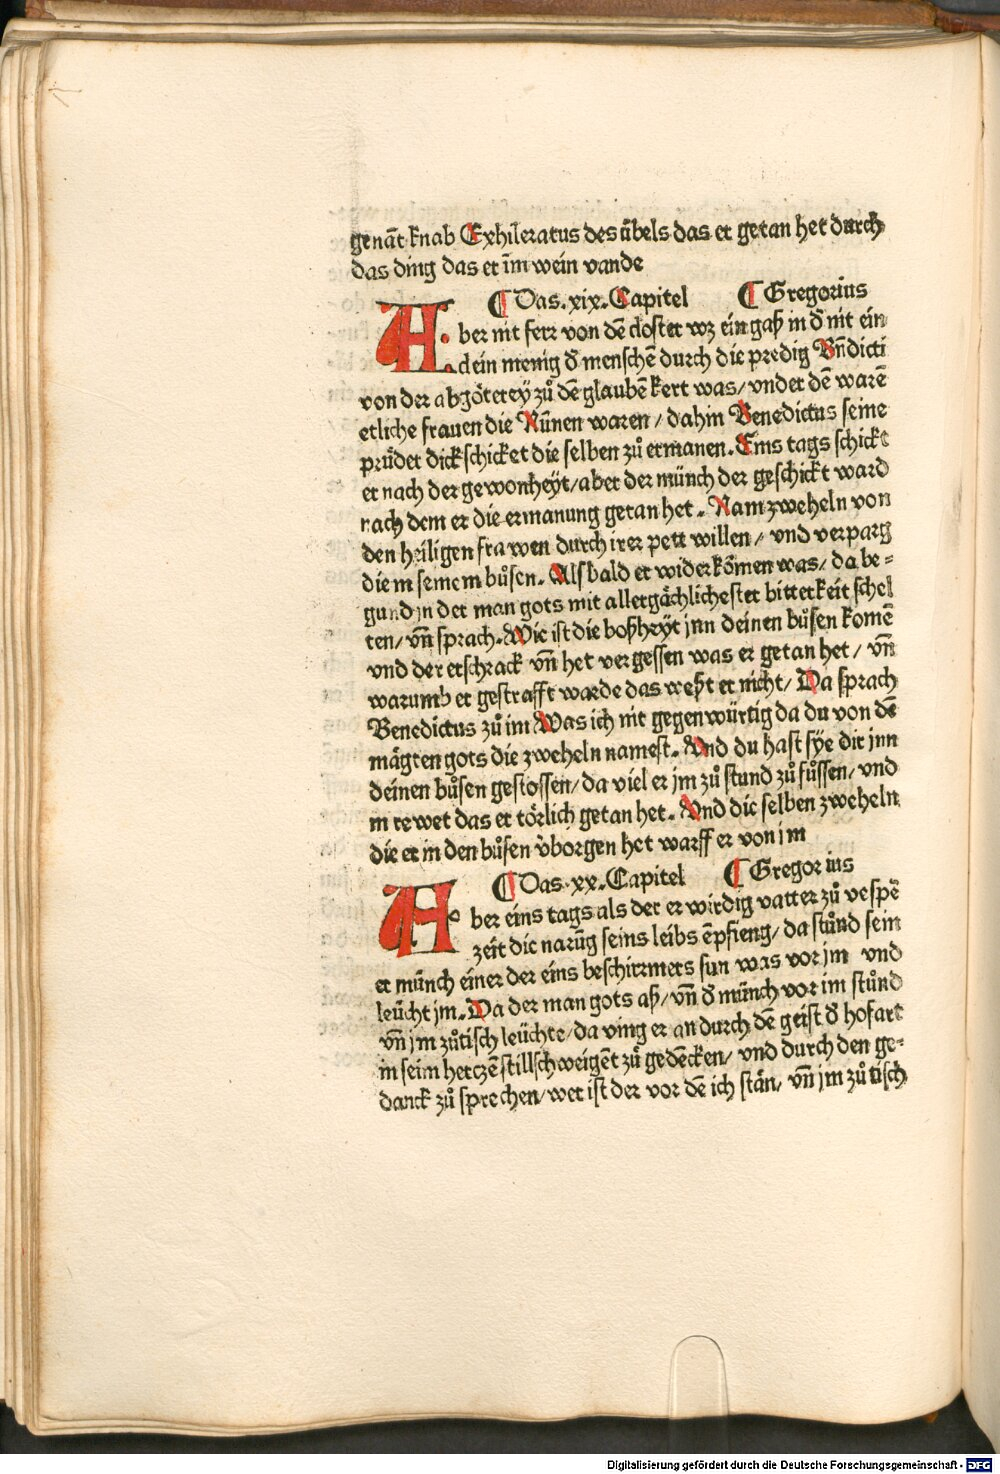 genãt knab Exhileratus des übels das er getan het durch
das ding das er im wein vande
¶ Das .xix. Capitel ¶ Gregorius
Aber nit ferr von dẽ closter wz ein gaß in d̕ nit ein
clein menig d̕ menschẽ durch die predig Bñdicti
von der abgötterey zů dẽ glaubẽ kert was/ vnder dẽ warẽ
etliche frauen die Nũnen waren/ dahin Benedictus seine
průder dick schicket die selben zů ermanen. Eins tags schickt
er nach der gewonheyt/ aber der münch der geschickt ward
nach dem er die ermanung getan het. Nam zweheln von
den heiligen frawen durch irer pett willen/ vnd verparg
die in seinem bůsen. Als bald er widerkõmen was/ da be=
gund in der man gots mit allergächlichester bitterkeit schel
ten/ vñ sprach. Wie ist die boßheyt jnn deinen bůsen komẽ
vnd der erschrack vñ het vergessen was er getan het/ vñ
warumb er gestrafft warde das weßt er nicht/ Da sprach
Benedictus zů im Was ich nit gegenwürtig da du von dẽ
mägten gots die zweheln namest. Vnd du hast sye dir jnn
deinen bůsen gestossen/ da viel er jm zů stund zů fůssen/ vnd
in rewet das er törlich getan het. Vnd die selben zweheln
die er in den bůsen v̕borgen het warff er von im
¶ Das .xx. Capitel ¶ Gregorius
Aber eins tags als der erwirdig vatter zů vespẽ
zeit die narũg seins leibs ẽpfieng/ da stůnd sein
er münch einer der eins beschirmers sun was vor jm vnd
leücht jm. Da der man gots aß/ vñ d̕ münch vor im stůnd
vñ jm zů tisch leüchte/ da ving er an durch dẽ geist d̕ hofart
in seim herczẽ stillschweigẽt zů gedẽcken/ vnd durch den ge=
danck zů sprechen/ wer ist der vor dẽ ich stän/ vñ jm zů tisch
Digitalisierung gefördert durch die Deutsche Forschungsgemeinschaft - DFG